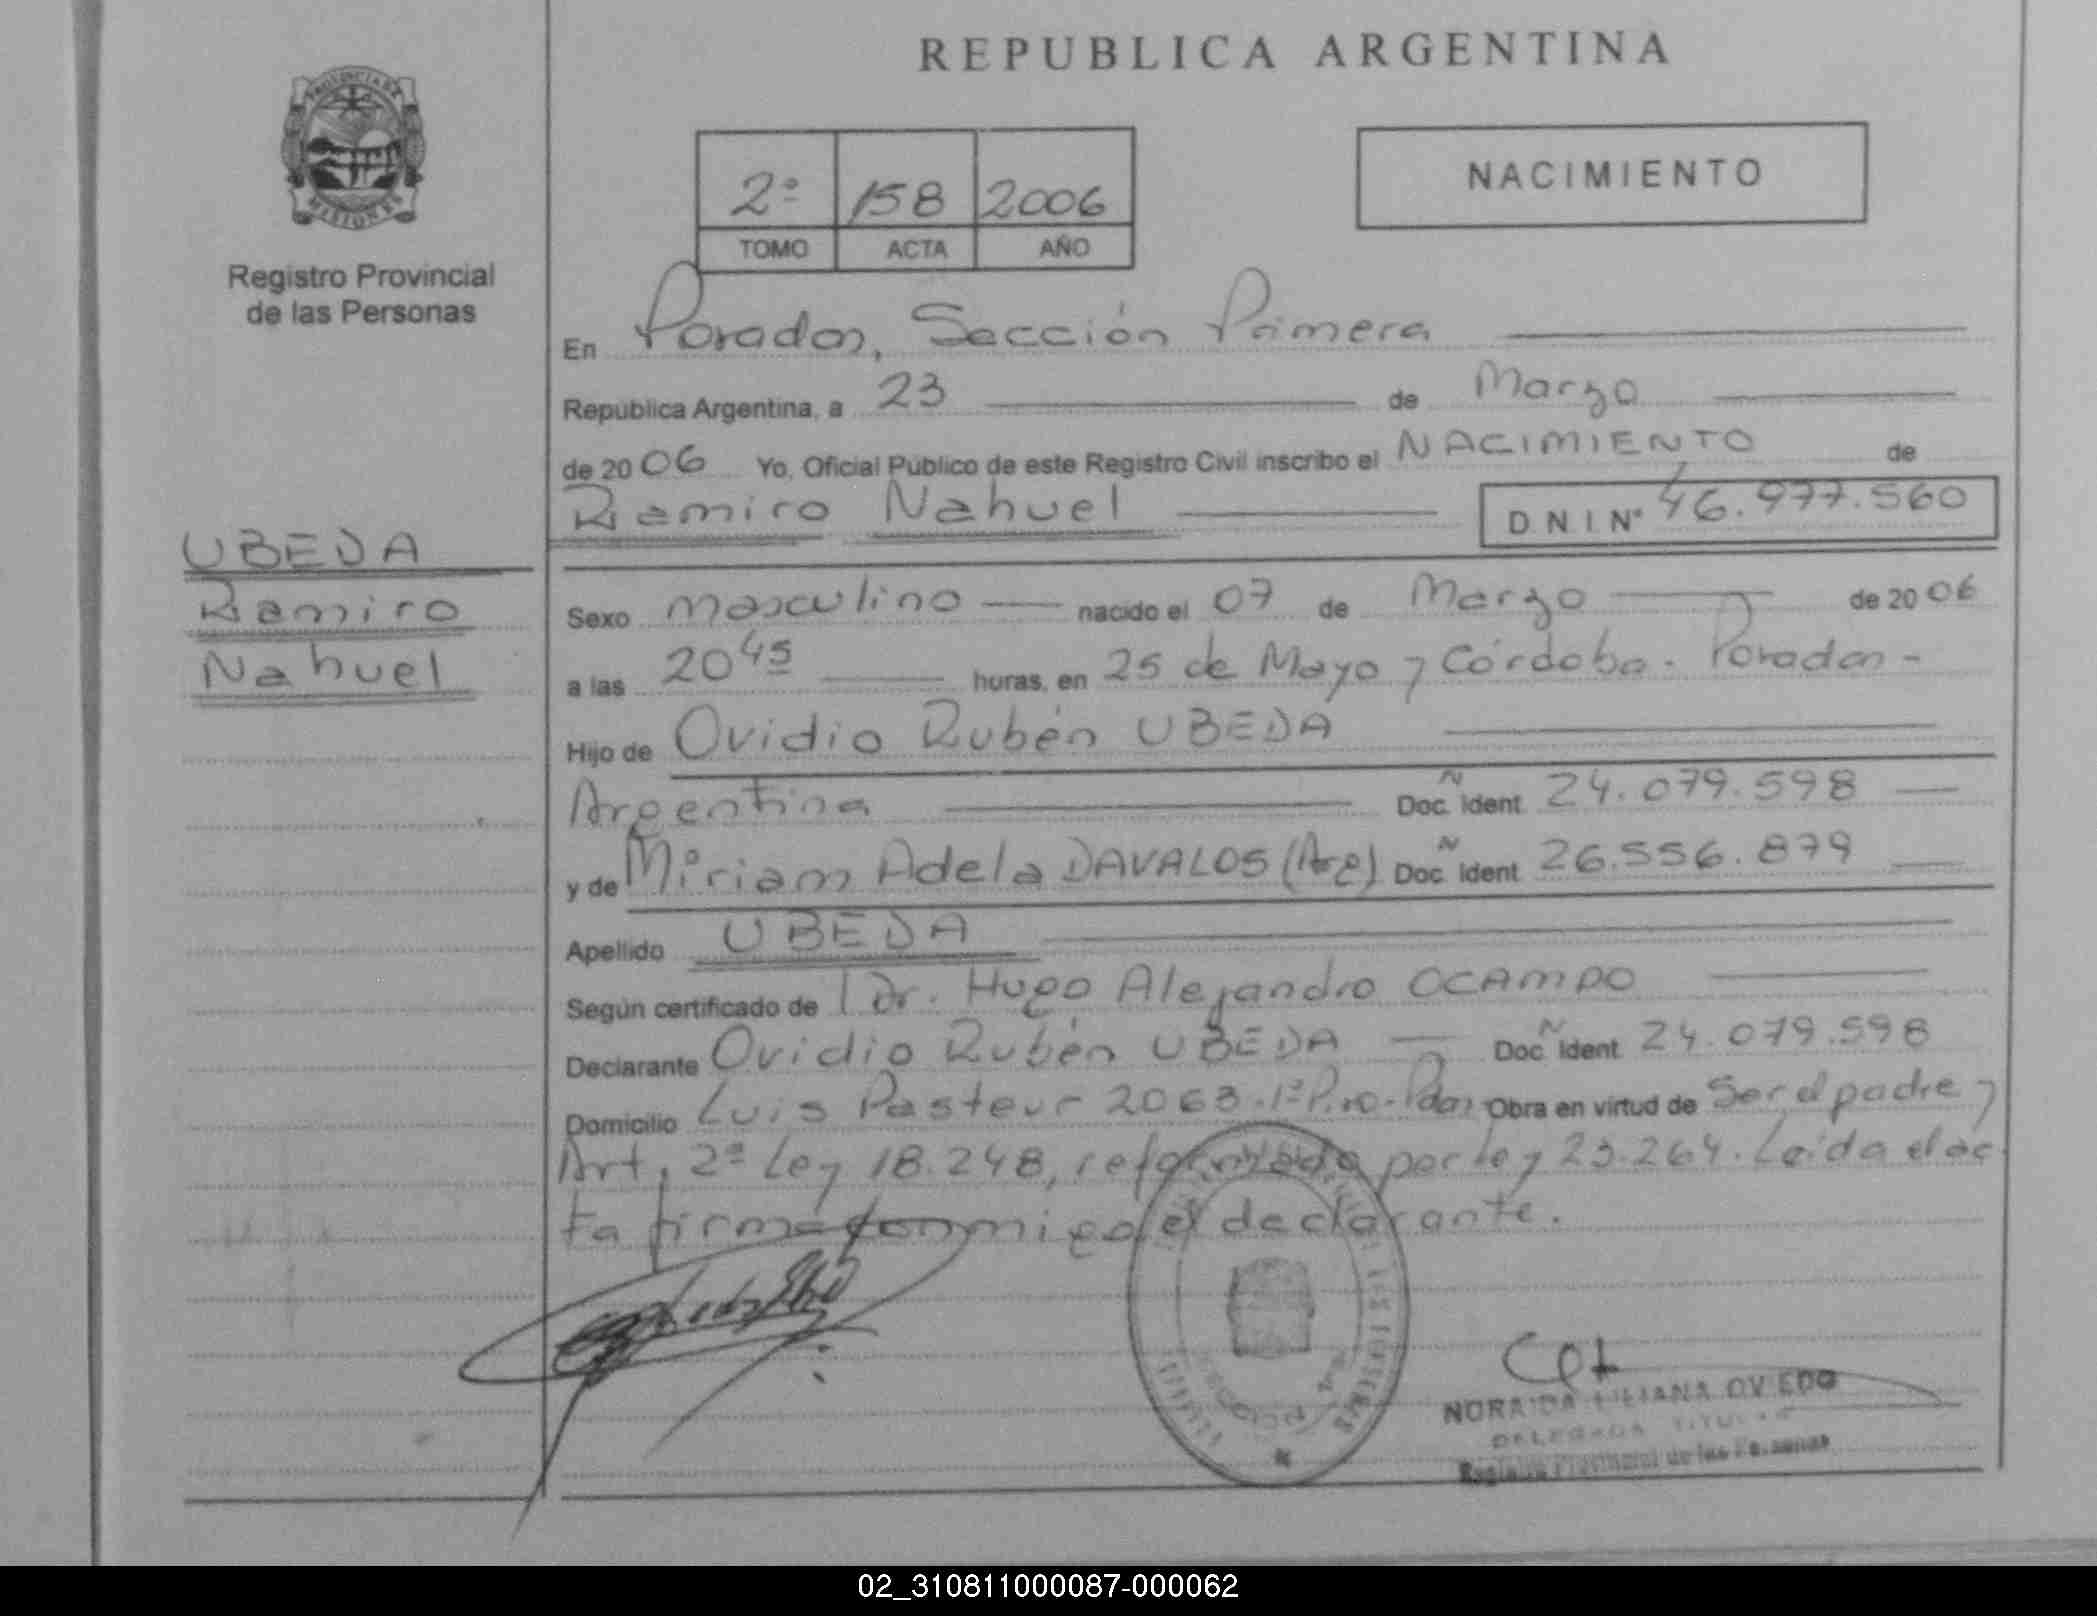 REPUBLICA ARGENTINA
PROVINCIA DE
MISIONES
Registro Provincial
de las Personas
2º 158 2006
TOMO ACTA AÑO
NACIMIENTO
En Posadas, Sección Primera
República Argentina, a 23 de Marzo
de 2006 Yo, Oficial Público de este Registro Civil inscribo el NACIMIENTO de
Ramiro Nahuel D N I Nº 46.977.560
UBEDA
Ramiro
Nahuel
Sexo masculino nacido el 07 de Marzo de 2006
a las 20 45 huras, en 25 de Mayo y Córdoba - Posadas -
Hijo de Ovidio Rubén UBEDA
Argentina Doc. Ident N 24.079.598
y de Miriam Adela DAVALOS (Arg) Doc. Ident N 26.556.879
Apellido UBEDA
Según certificado de Dr. Hugo Alejandro OCAMPO
Declarante Ovidio Rubén UBEDA Doc. Ident N 24.079.598
Domicilio Luis Pasteur 2063 - Pdas Obra en virtud de Ser el padre y
Art. 2º Ley 18.248, reformado por ley 23.264. Leída el ac
ta firma conmigo el declarante.
NORAIDA LILIANA OVIEDO
DELEGADA TITULAR
Registro Provincial de las Personas
02_310811000087-000062